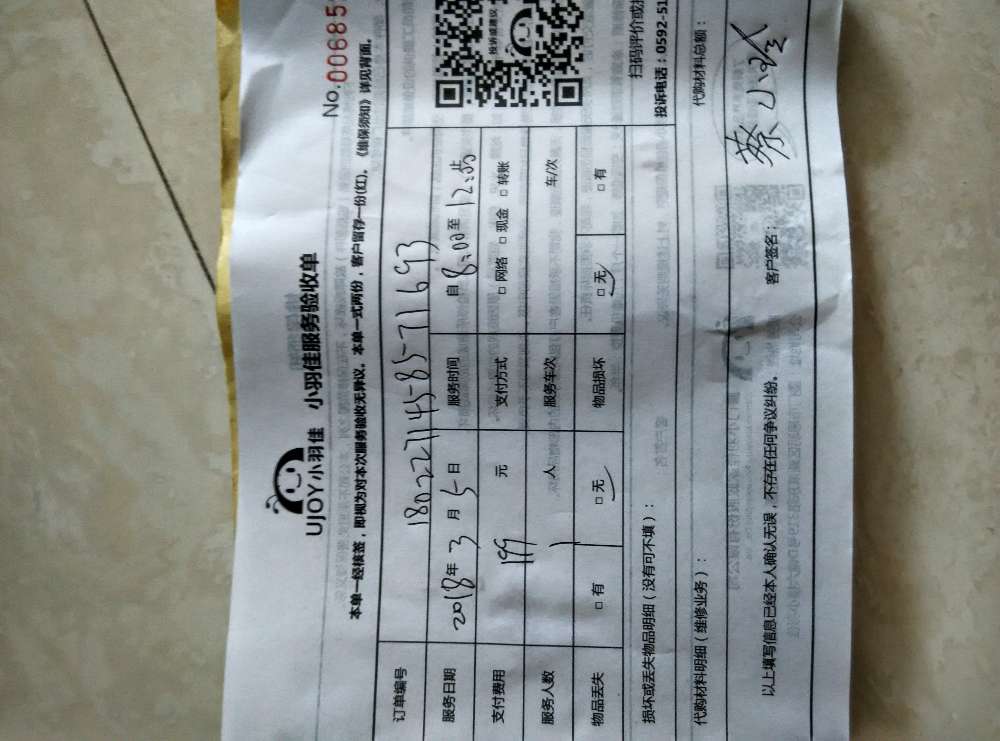 No.00685
UJOY小羽佳 小羽佳服务验收单
本单一经核签，即视为对本次服务验收无异议。本单一式两份，客户留存一份(红)。《维保须知》详见背面。
订单编号 18022271145-85-71693
服务日期 2018年3月5日 服务时间 自8:00至12:05
支付费用 199 元 支付方式 □网络 □现金 □转账
服务人数 1 人 服务车次 车/次
物品丢失 □有 □无 物品损坏 □无 □有
投诉或建议
扫码评价或投
投诉电话：0592-51
损坏或丢失物品明细（没有可不填）：
代购材料明细（维修业务）： 代购材料总额：
以上填写信息已经本人确认无误，不存在任何争议纠纷。 客户签名： 蔡小玲